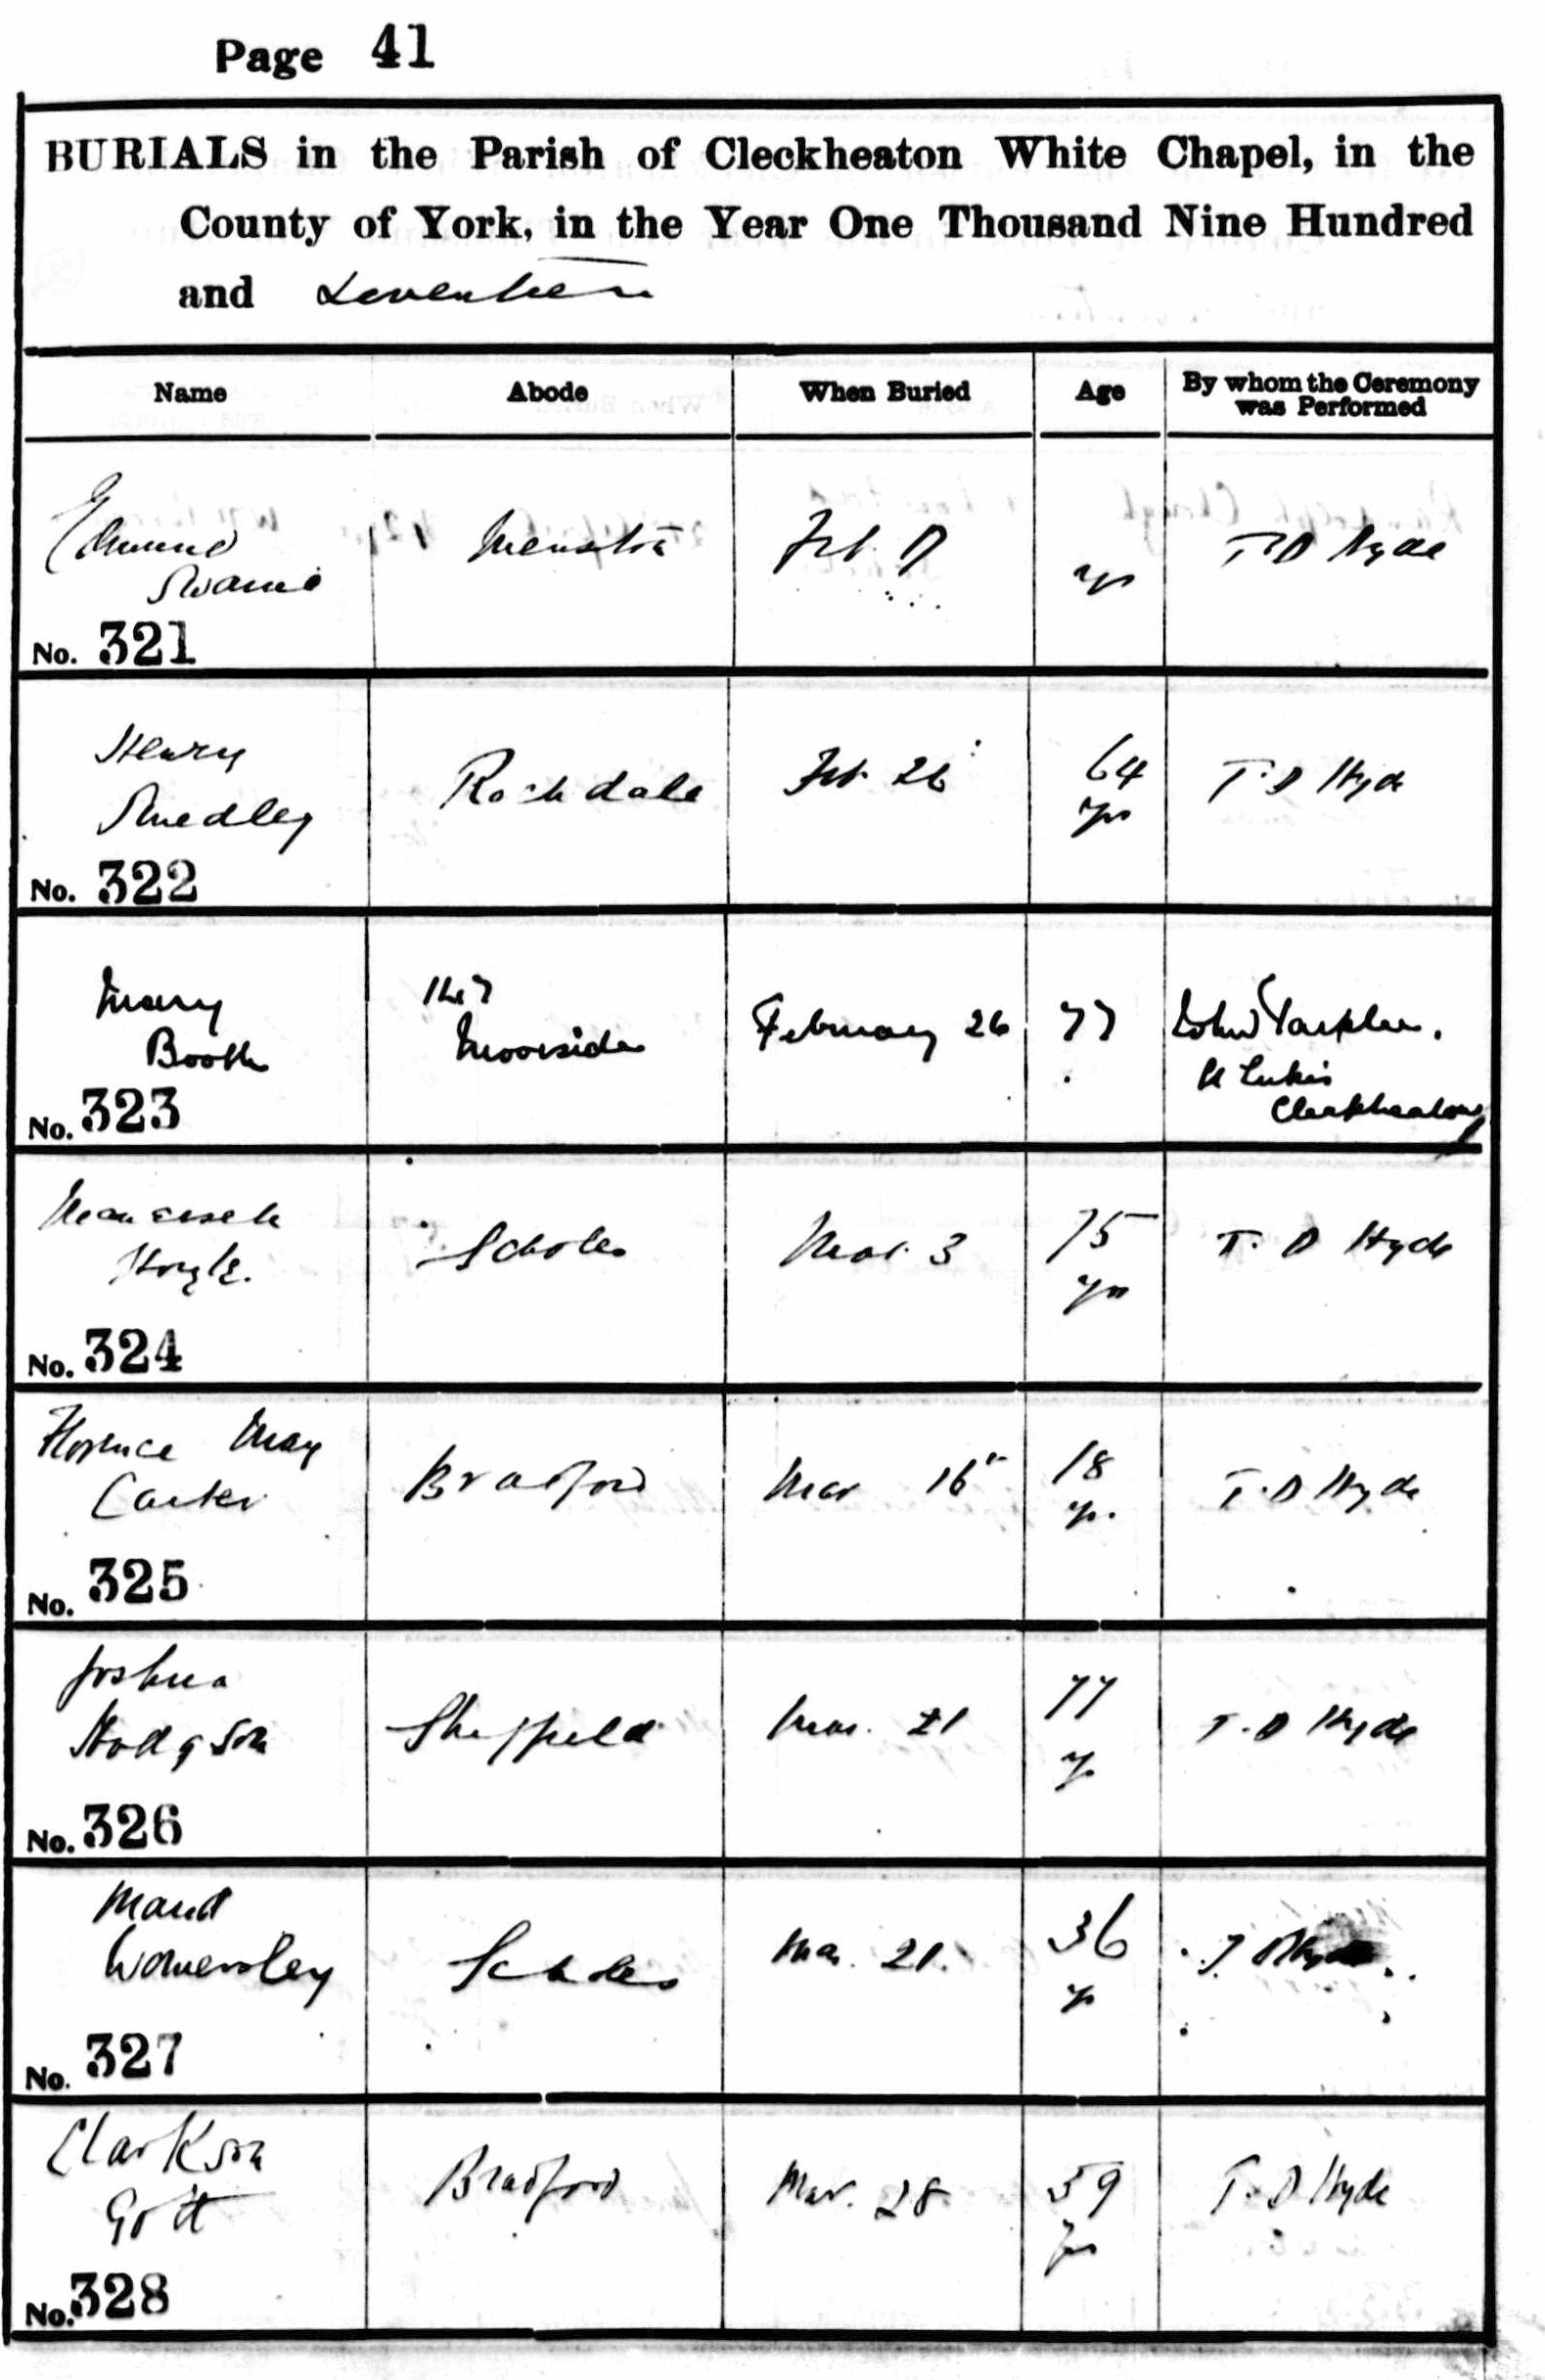 Page 41
BURIALS in the Parish of Cleckheaton White Chapel, in the
County of York, in the Year One Thousand Nine Hundred
and Seventeen
Name Abode When Buried Age By whom the Ceremony
was Performed
Edmund Menston Feb. 17 T D Hyde
yrs
No. 321
Henry Rochdale Feb 26 64 T. D Hyde
Smedley yrs
No. 322
Mary 167 February 26 77 John
Booth Moorside St Luke's
Cleckheaton
No. 323
Manasseh Scholes Mar. 3 75 T. D Hyde
Hoyle. yrs
No. 324
Florence May Bradford Mar 16 18 T. D Hyde
Carter yrs.
No. 325
Joshua Sheffield Mar. 21 77 T. D Hyde
Hodgson yrs
No. 326
Maud Scholes Mar. 21. 36 T. D Hyde
Womersley yrs
No. 327
Clarkson Bradford Mar. 28 59 T. D Hyde
Gott yrs
No. 328